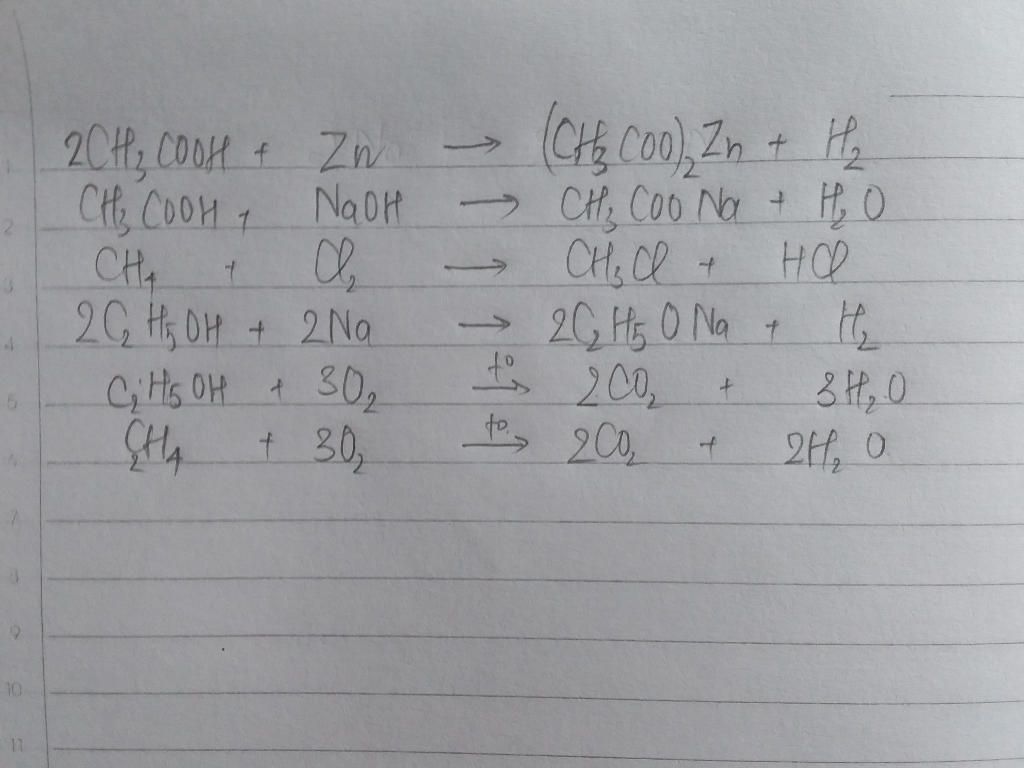 2CH₃COOH + Zn → (CH₃COO)₂Zn + H₂
CH₃COOH + NaOH → CH₃COONa + H₂O
CH₄ + Cl₂ → CH₃Cl + HCl
2C₂H₅OH + 2Na → 2C₂H₅ONa + H₂
C₂H₅OH + 3O₂ →(t°) 2CO₂ + 3H₂O
C₂H₄ + 3O₂ →(t°) 2CO₂ + 2H₂O